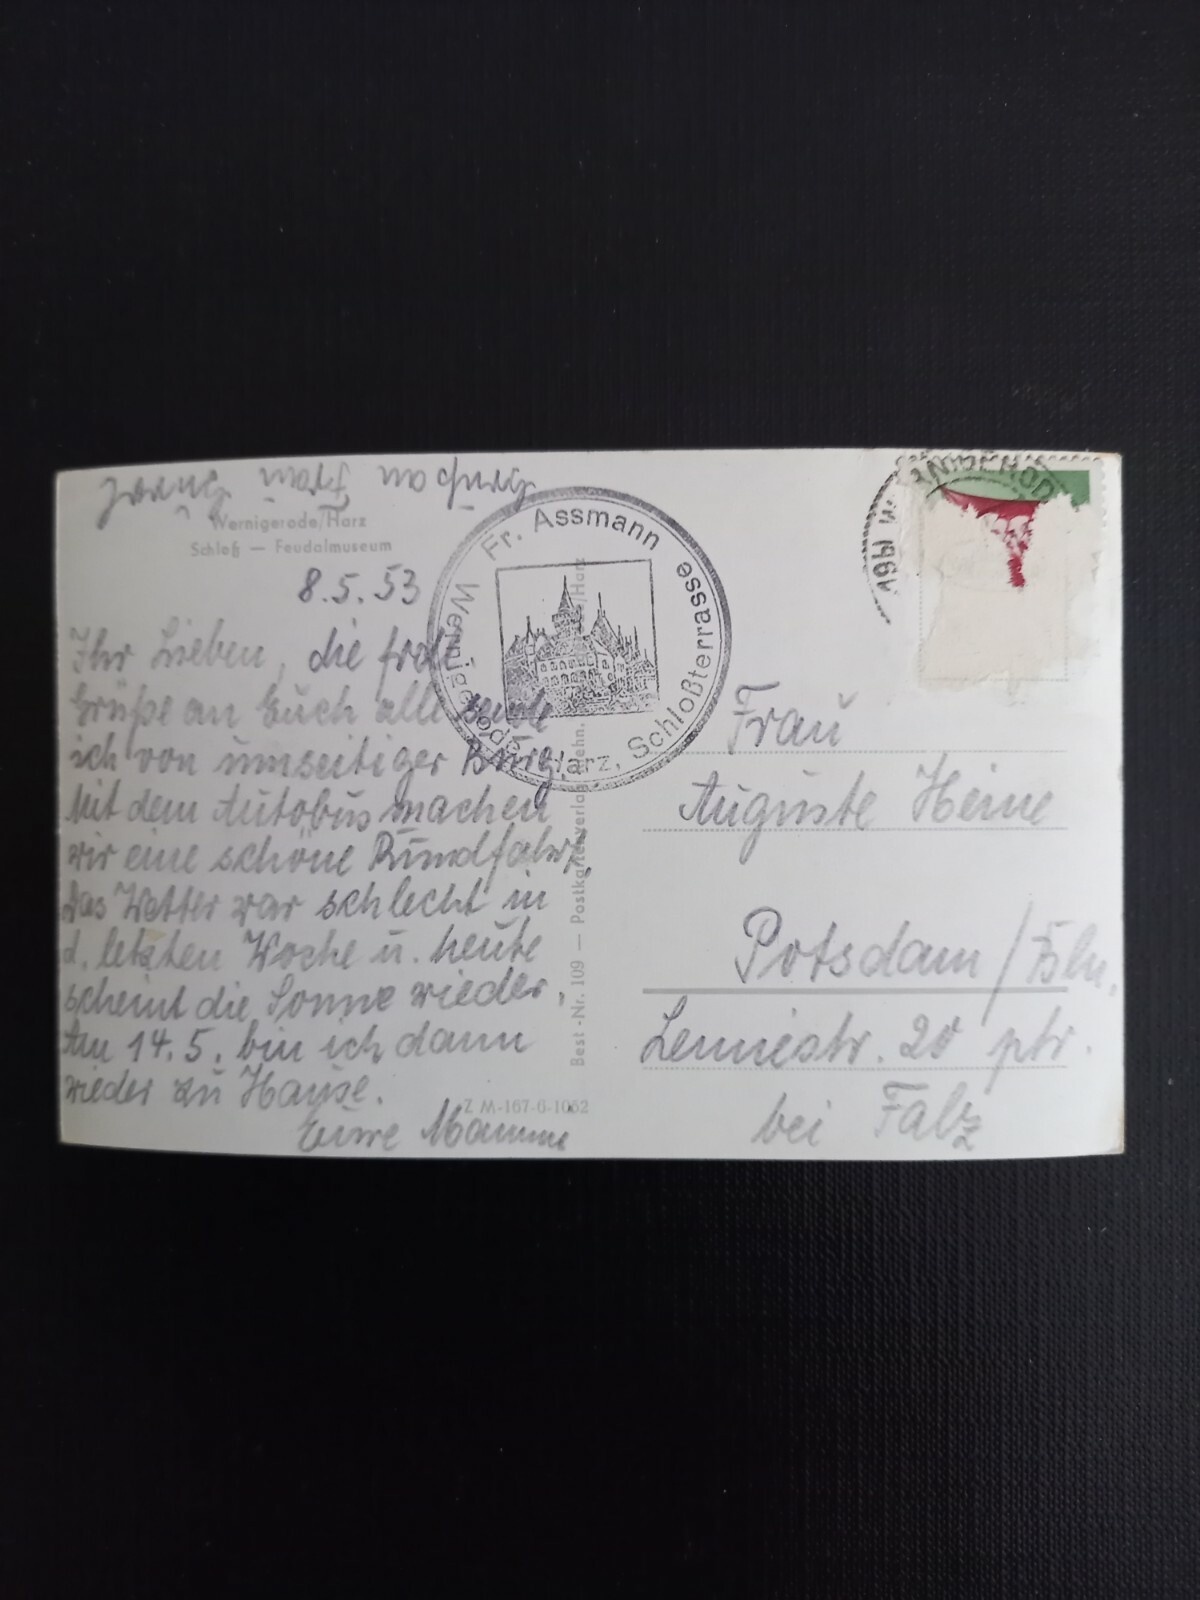 Gruß an Frau
Wernigerode/Harz
Schloß — Feudalmuseum
8.5.53
Ihr Lieben, die frohe
Grüße an Euch alle sende
ich von umseitiger Burg.
Mit dem Autobus machen
wir eine schöne Rundfahrt,
Das Wetter war schlecht in
d. letzten Woche u. heute
scheint die Sonne wieder.
Am 14.5. bin ich dann
wieder zu Hause.
Eure Mamme
Z M-167-6-1052
Fr. Assmann
Wernigerode/Harz, Schloßterrasse
Best.-Nr. 109 — Postkartenverlag
WERNIGEROD
Frau
Auguste Heine
Potsdam / Bln.
Lennéstr. 20 ptr.
bei Falz